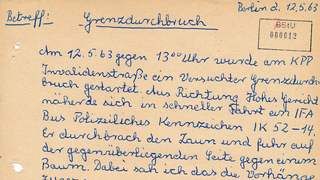 Berlin d. 12.5.63
Betreff: Grenzdurchbruch
BStU
000012
Am 12.5.63 gegen 13⁰⁰ Uhr wurde am KPP
Invalidenstraße ein Versuchter Grenzdurch-
bruch gestartet. Aus Richtung Hohes Gericht
näherde sich in schneller Fahrt ein IFA
Bus Polizeiliches Kennzeichen IK 52-14.
Er durchbrach den Zaun und fuhr auf
der gegenüberliegenden Seite gegen einen
Baum. Dabei sah ich das die Vorhänge